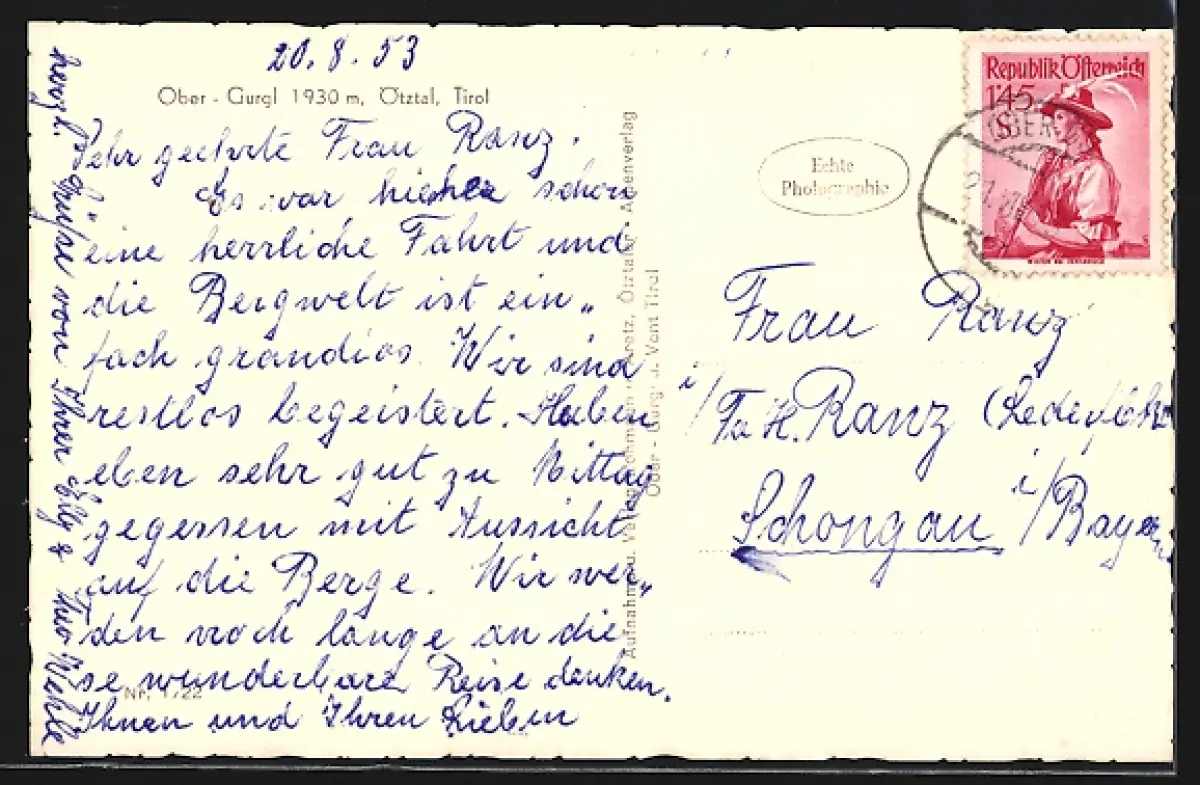 20.8.53
Ober - Gurgl 1930 m, Ötztal, Tirol
Sehr geehrte Frau Ranz.
Es war hieher schon
eine herrliche Fahrt und
die Bergwelt ist ein„
fach grandios. Wir sind
restlos begeistert. Haben
eben sehr gut zu Mittag
gegessen mit Aussicht
auf die Berge. Wir wer„
den noch lange an die
se wunderbare Reise denken.
Nr. 1722
Ihnen und Ihren Lieben
herzl. Grüße von Ihrer Elly & Theo Wehle
Aufnahme u. Verlag Ötztaler Alpenverlag
Ober - Gurgl u. Vent Tirol
Echte
Photographie
Republik Österreich
1'45
S
OBER
Frau Ranz
i/ Fa H. Ranz
Schongau i/Bayern